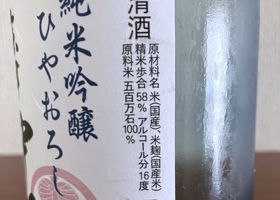 清酒
原材料名 米(国産)、米麹(国産米)
精米歩合 58% アルコール分 16度
原料米 五百万石100%
純米吟醸
ひやおろし